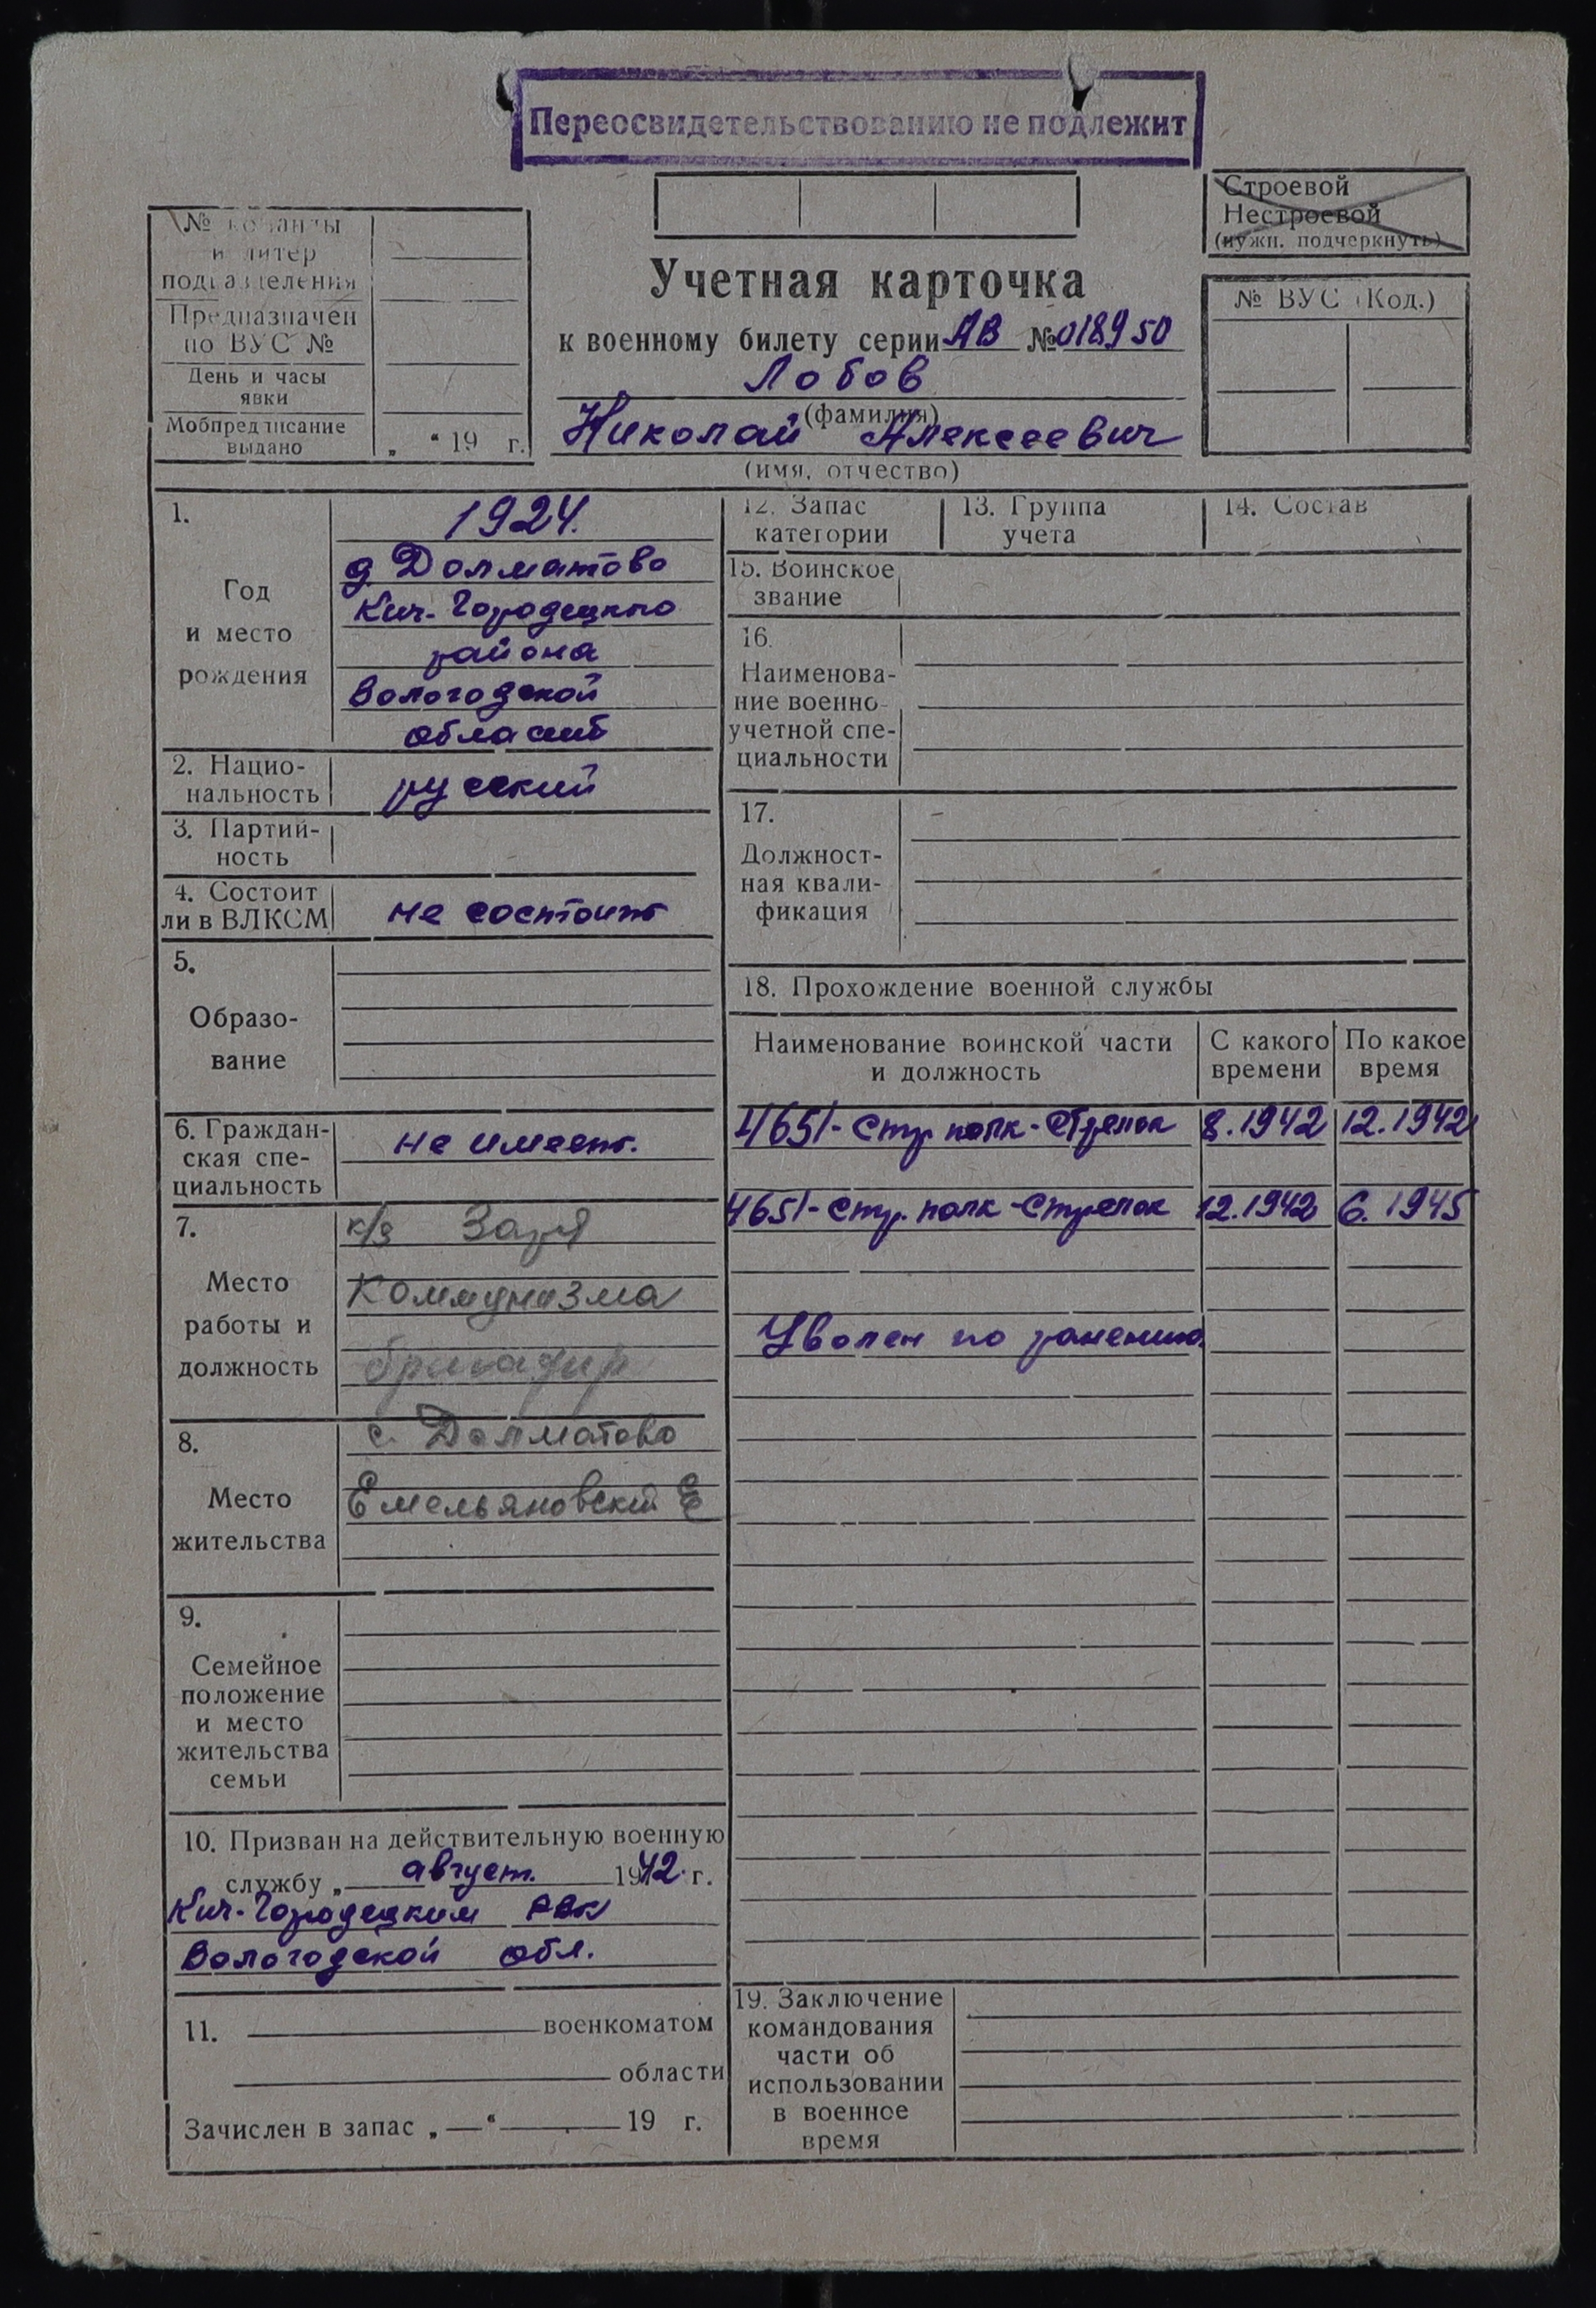 Переосвидетельствованию не подлежит
Строевой
Нестроевой
(нужн. подчеркнуть)
№ команды
и литер
подразделения
Предназначен
по ВУС №
День и часы
явки
Мобпредписание
выдано
„ “ 19 г.
Учетная карточка
к военному билету серии АВ № 018950
Лобов
(фамилия)
Николай Алексеевич
(имя, отчество)
№ ВУС (Код.)
1.
Год
и место
рождения
1924.
д Долматово
Кич-Городецкого
района
Вологодской
область
2. Нацио-
нальность
русский
3. Партий-
ность
4. Состоит
ли в ВЛКСМ
не состоит
5.
Образо-
вание
6. Граждан-
ская спе-
циальность
не имеет.
7.
Место
работы и
должность
к/з Заря
Коммунизма
бригадир
8.
Место
жительства
с. Долматово
Емельяновский
9.
Семейное
положение
и место
жительства
семьи
10. Призван на действительную военную
службу „ август. 1942 г.
Кич-Городецким РВК
Вологодской обл.
11. военкоматом
области
Зачислен в запас „ “ 19 г.
12. Запас
категории
13. Группа
учета
14. Состав
15. Воинское
звание
16.
Наименова-
ние военно-
учетной спе-
циальности
17.
Должност-
ная квали-
фикация
18. Прохождение военной службы
Наименование воинской части
и должность
С какого
времени
По какое
время
465/- стр полк - стрелок 8.1942 12.1942
465/- стр. полк - стрелок 12.1942 6.1945
Уволен по ранению.
19. Заключение
командования
части об
использовании
в военное
время